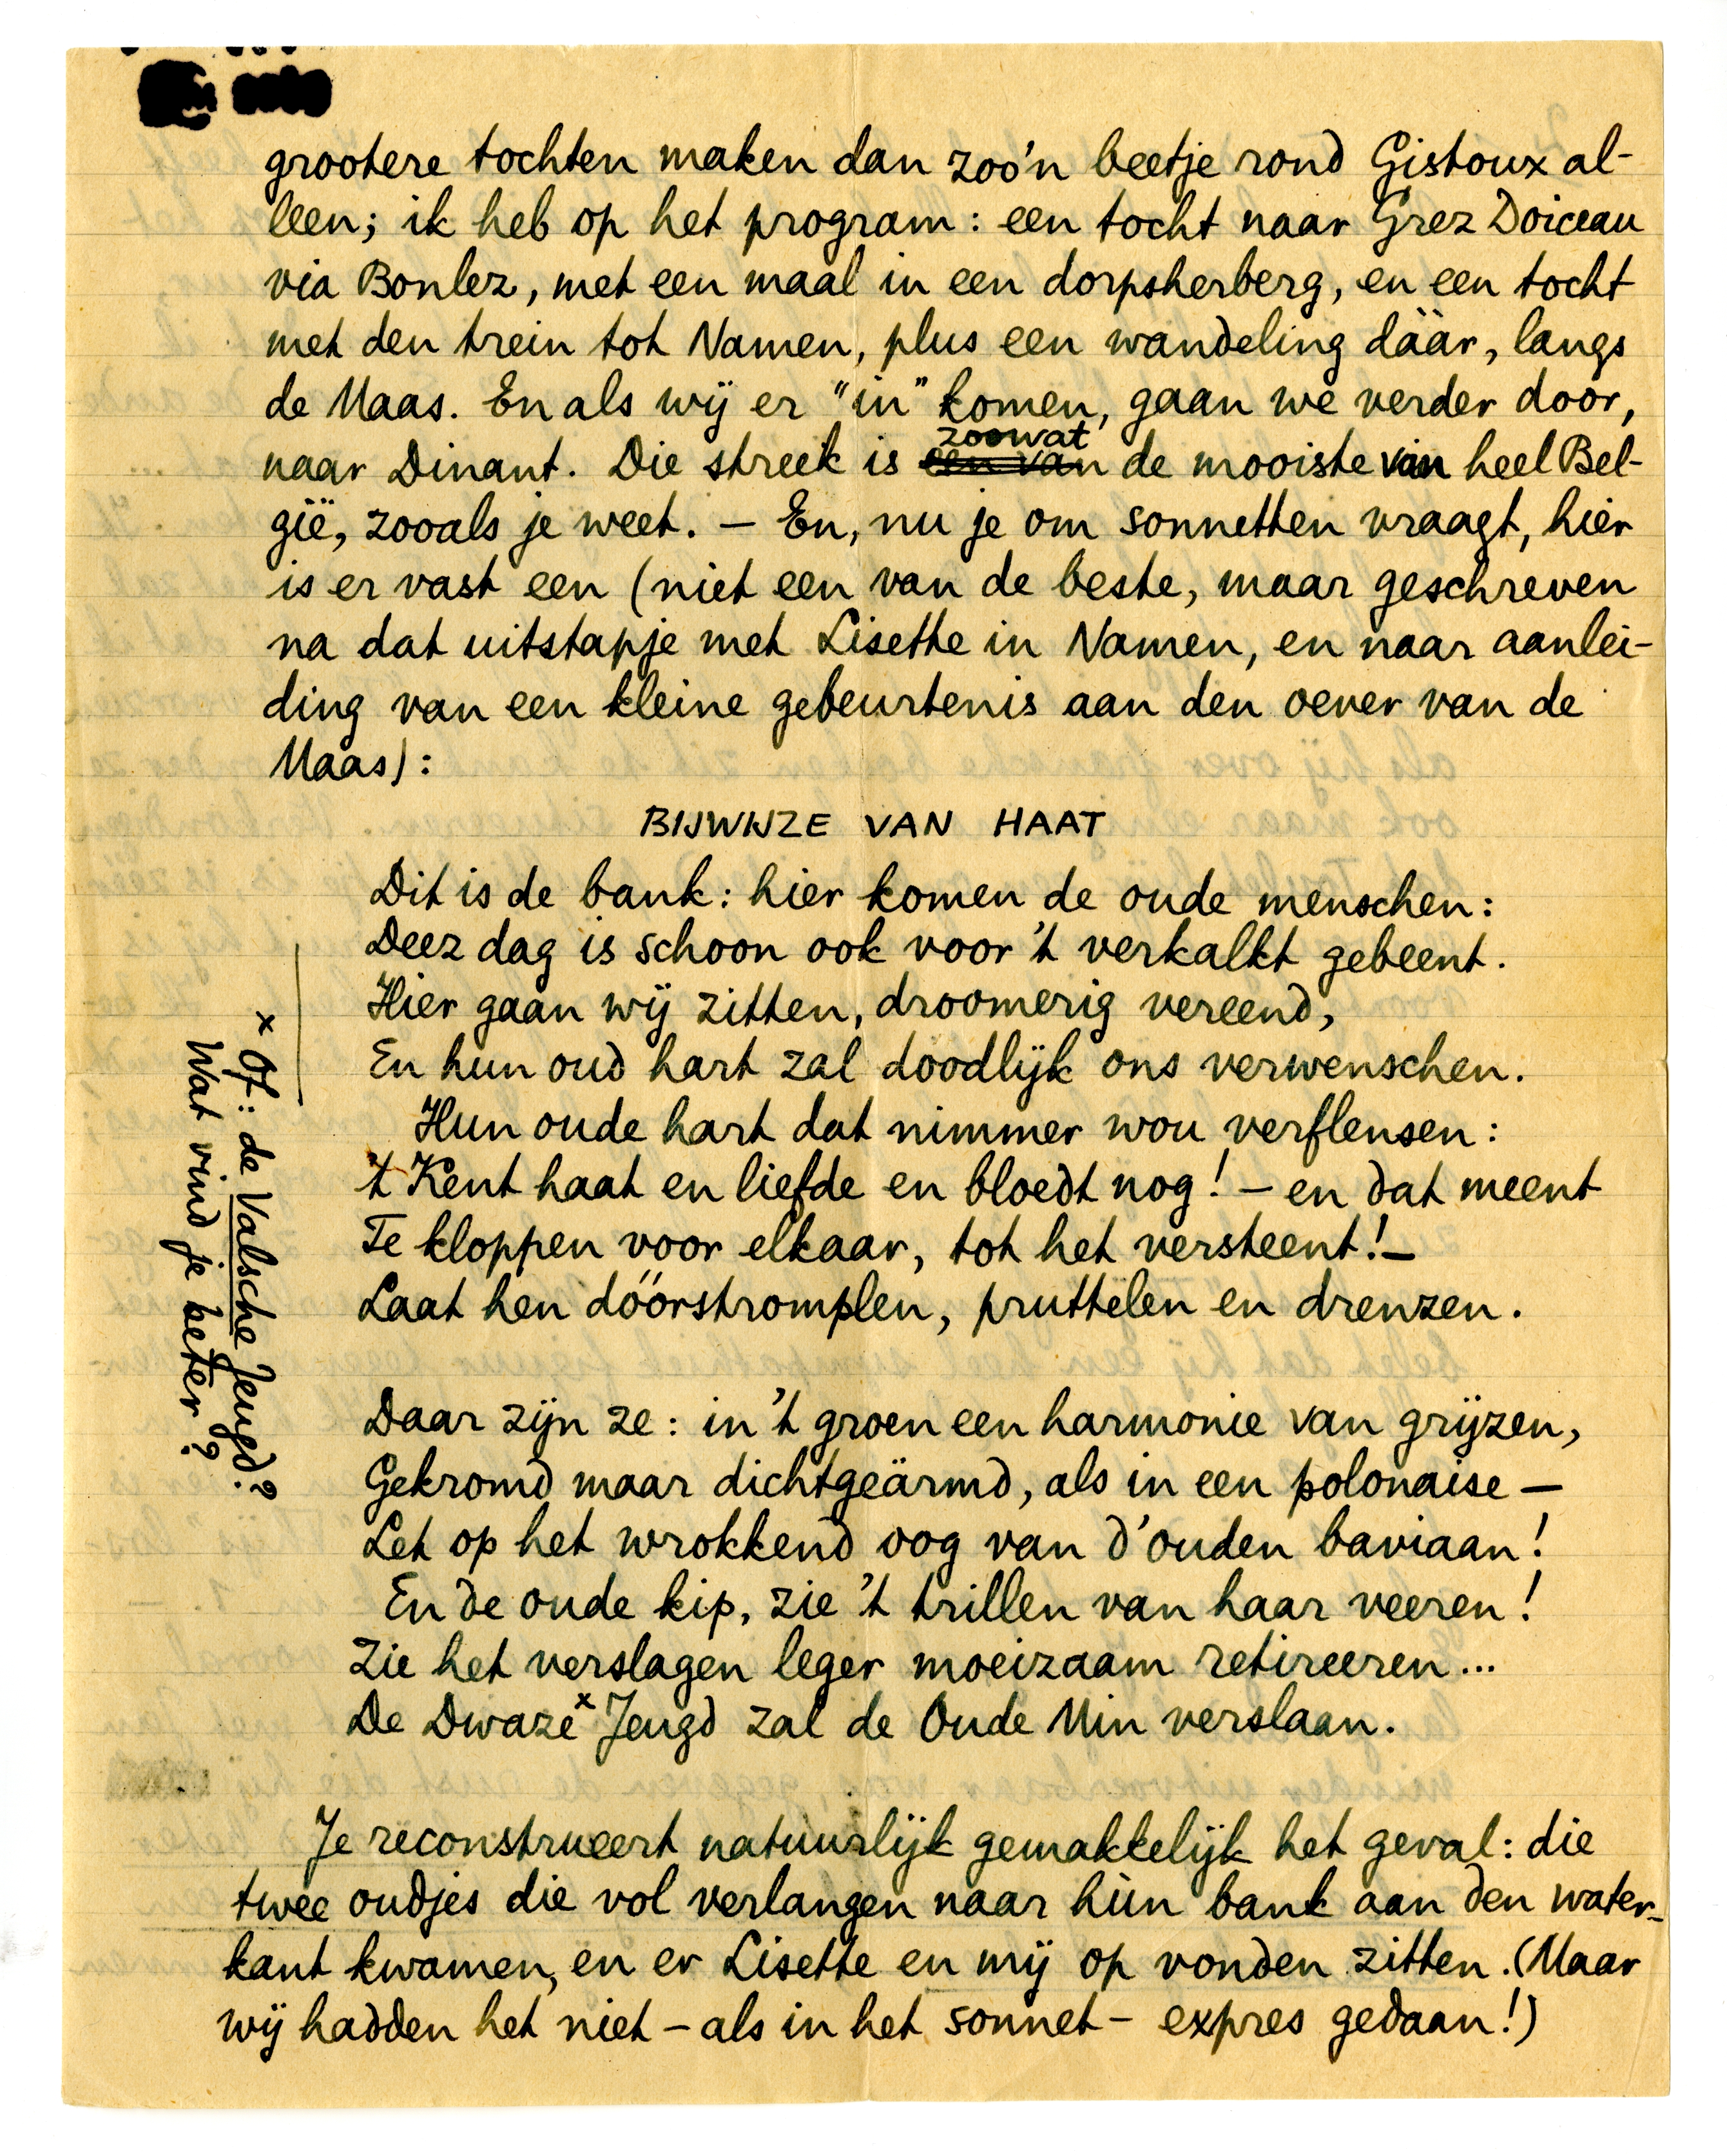 grootere tochten maken dan zoo'n beetje rond Gistoux al-
leen; ik heb op het program: een tocht naar Grez Doiceau
via Bonlez, met een maal in een dorpsherberg, en een tocht
met den trein tot Namen, plus een wandeling dààr, langs
de Maas. En als wij er "in" komen, gaan we verder door,
naar Dinant. Die streek is een van zoowat de mooiste van heel Bel-
gië, zooals je weet. — En, nu je om sonnetten vraagt, hier
is er vast een (niet een van de beste, maar geschreven
na dat uitstapje met Lisette in Namen, en naar aanlei-
ding van een kleine gebeurtenis aan den oever van de
Maas):
BIJWIJZE VAN HAAT
Dit is de bank: hier komen de oude menschen:
Deez dag is schoon ook voor 't verkalkt gebeent.
Hier gaan wij zitten, droomerig vereend,
En hun oud hart zal doodlijk ons verwenschen.
Hun oude hart dat nimmer wou verflensen:
't Kent haat en liefde en bloedt nog! — en dat meent
Te kloppen voor elkaar, tot het versteent! —
Laat hen dóórstromplen, pruttelen en drenzen.
Daar zijn ze: in 't groen een harmonie van grijzen,
Gekromd maar dichtgeärmd, als in een polonaise —
Let op het wrokkend oog van d'ouden baviaan!
En de oude kip, zie 't trillen van haar veeren!
Zie het verslagen leger moeizaam retireeren...
De Dwaze x Jeugd zal de Oude Min verslaan.
x Of: de Valsche Jeugd?
Wat vind je beter?
Je reconstrueert natuurlijk gemakkelijk het geval: die
twee oudjes die vol verlangen naar hùn bank aan den water-
kant kwamen, en er Lisette en mij op vonden zitten. (Maar
wij hadden het niet — als in het sonnet — expres gedaan!)